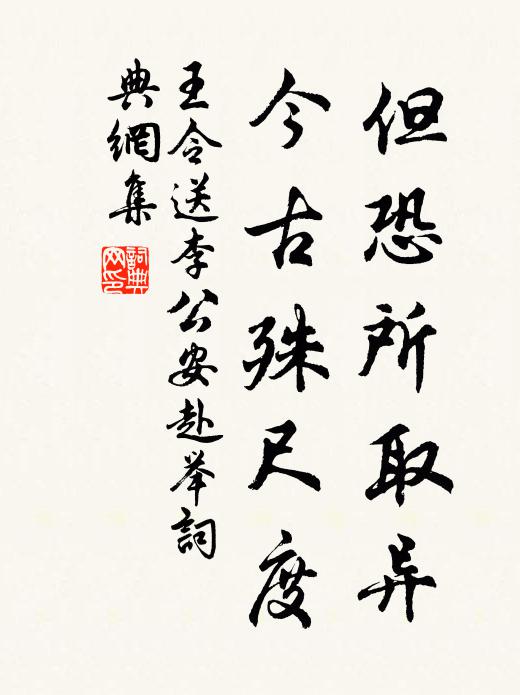 但恐所取异
今古殊尺度
王令送李公安赴举词
典網集
詞典網印